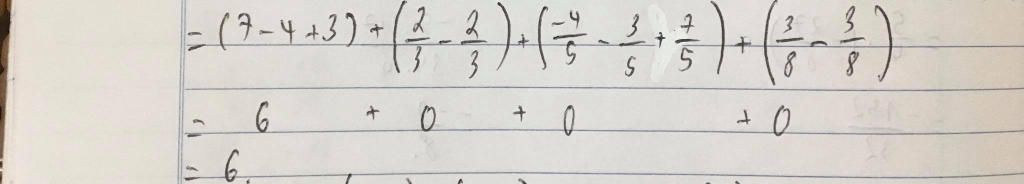 = (7 - 4 + 3) + (2/3 - 2/3) + (-4/5 - 3/5 + 7/5) + (3/8 - 3/8)
= 6 + 0 + 0 + 0
= 6.